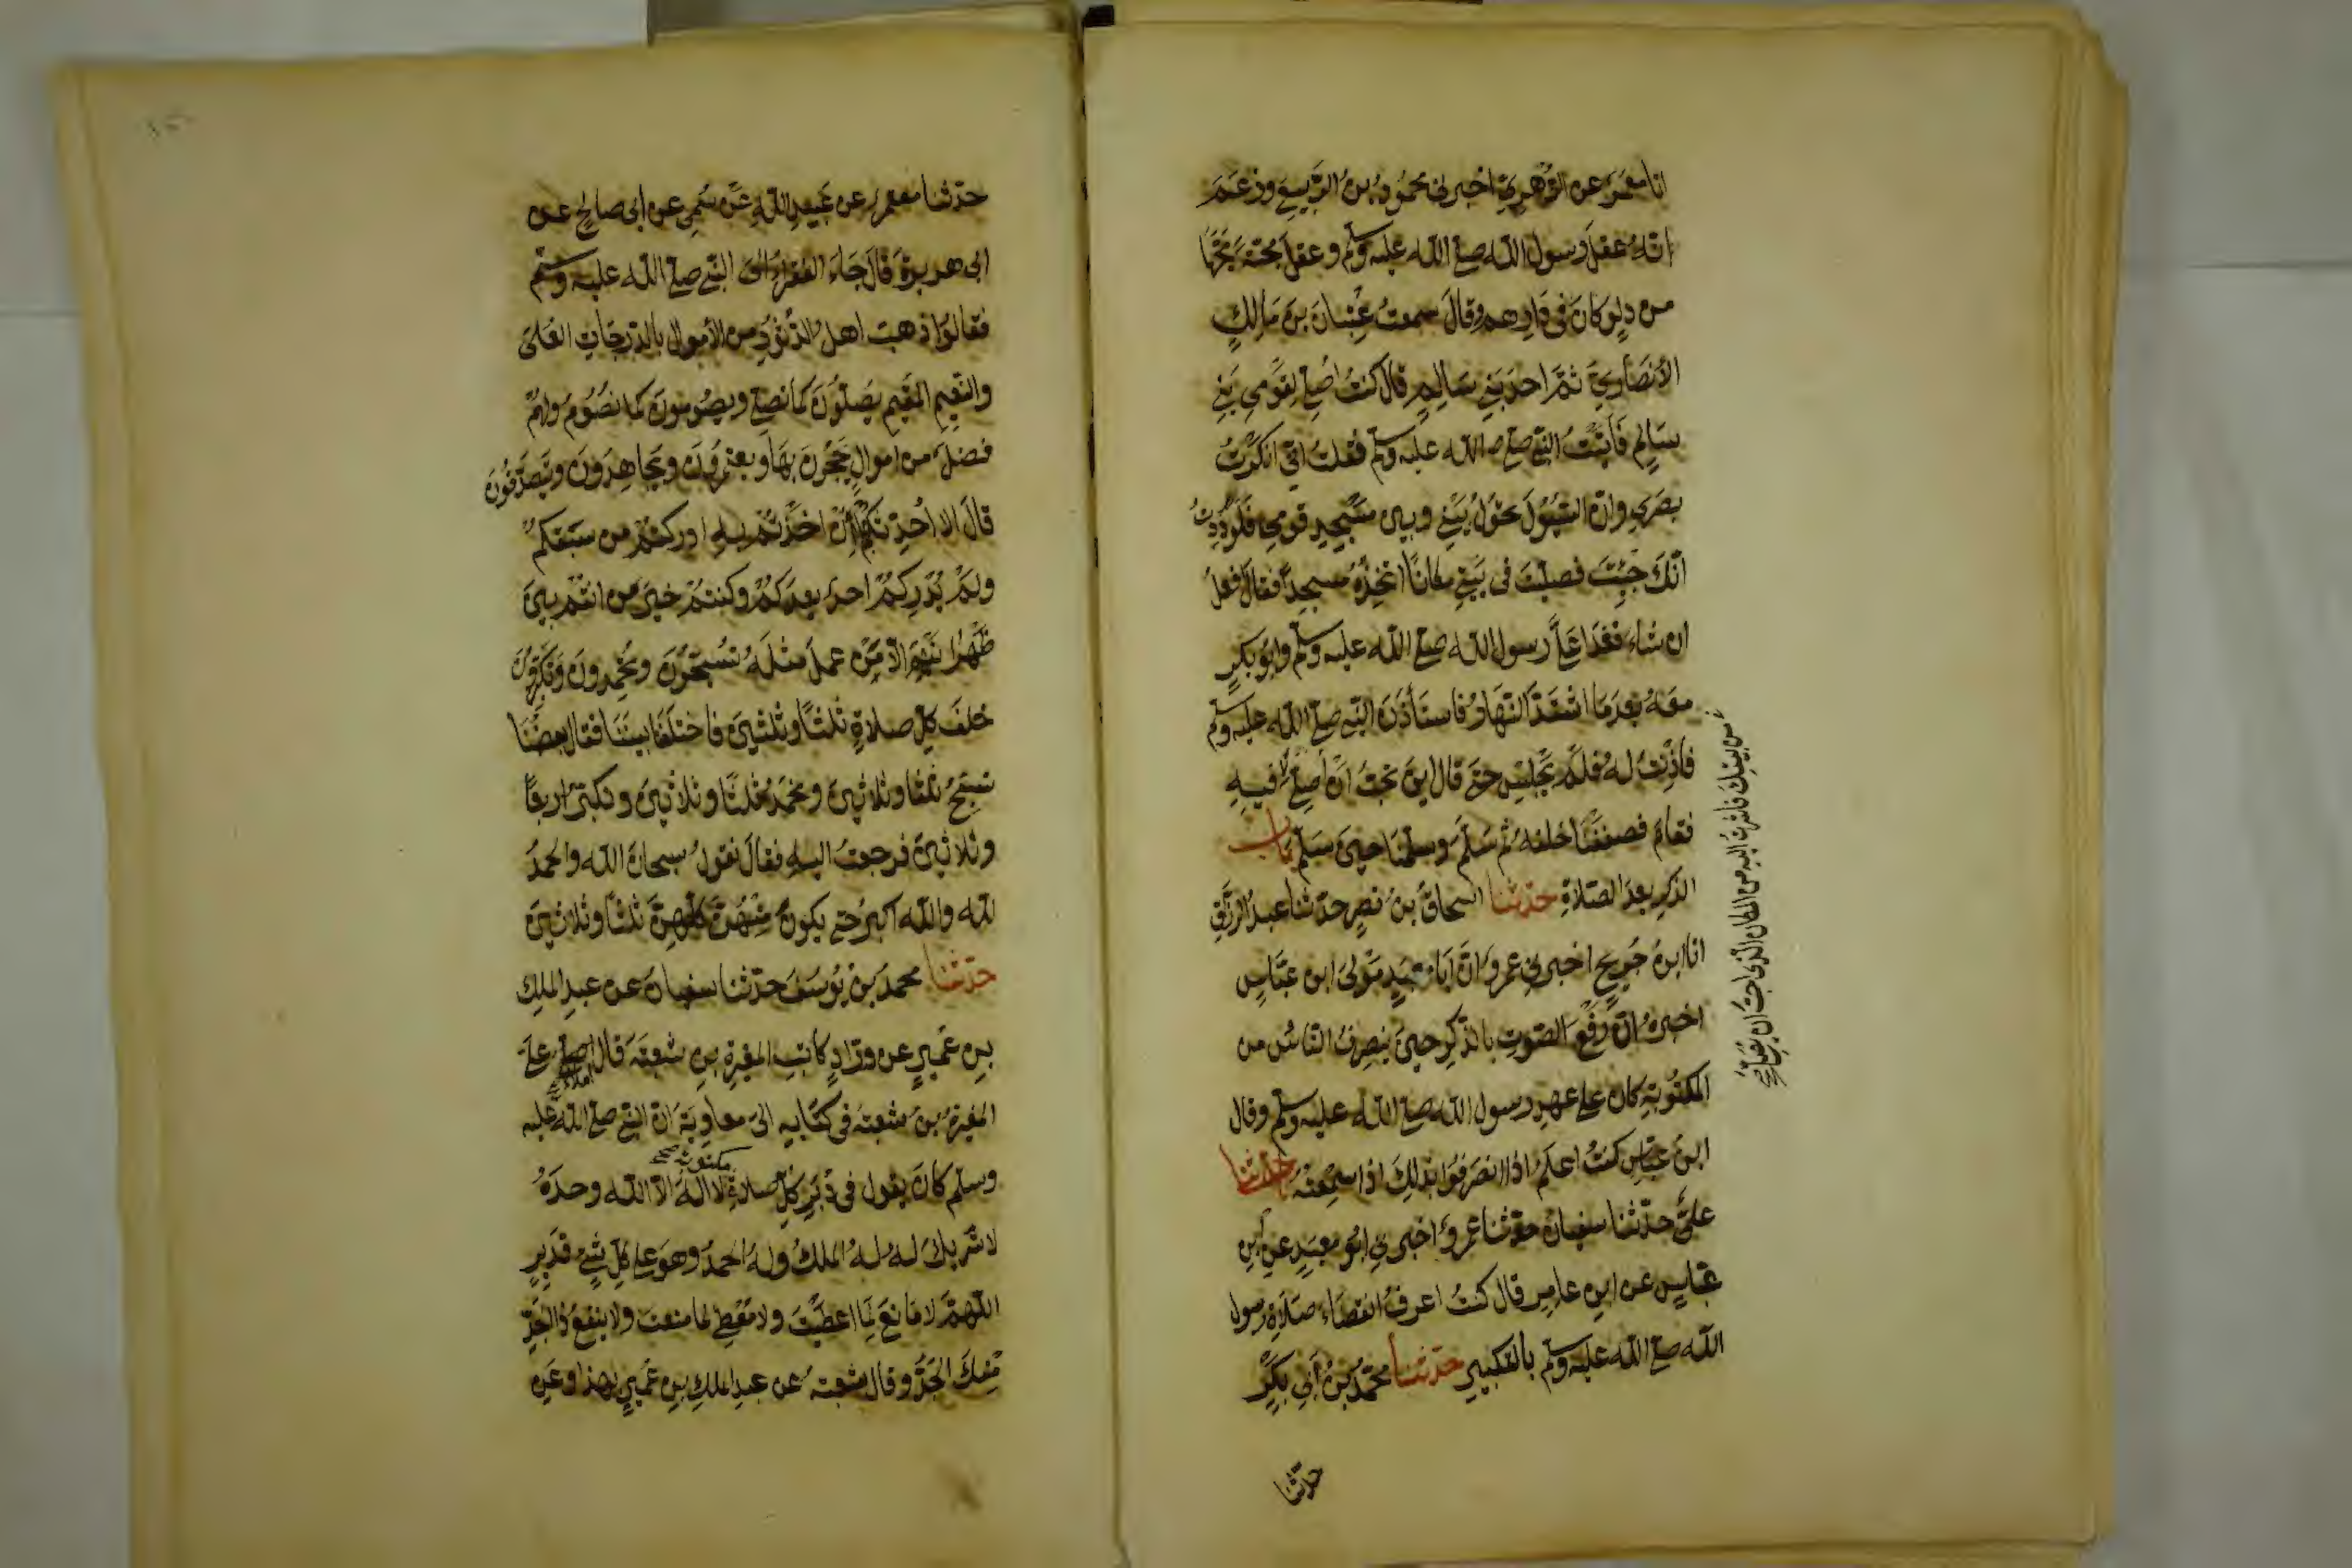 انا معمر عن الزهري اخبرني محمود بن الربيع وزعم
انه عقل رسول الله صلى الله عليه وسلم وعقل مجة مجها
من دلو كان في دارهم وقال سمعت عتبان بن مالك
الأنصاري ثم احد بني سالم قال كنت اصلي لقومي بني
سالم فأتيت النبي صلى الله عليه وسلم فقلت اني انكرت
بصري وان السيول تحول بيني وبين مسجد قومي فلوددت
انك جئت فصليت في بيتي مكانا اتخذه مسجدا فقال افعل
ان شاء فغدا علي رسول الله صلى الله عليه وسلم وابو بكر
معه بعد ما اشتد النهار فاستأذن النبي صلى الله عليه وسلم
فاذنت له فلم يجلس حتى قال اين تحب ان اصلي فيه
فقام فصففنا خلفه ثم سلم وسلمنا حين سلم باب
الذكر بعد الصلاة حدثنا اسحاق بن نصر حدثنا عبد الرزاق
انا ابن جريج اخبرني عمرو ان ابا معبد مولى ابن عباس
اخبره ان رفع الصوت بالذكر حين ينصرف الناس من
المكتوبة كان على عهد رسول الله صلى الله عليه وسلم وقال
ابن عباس كنت اعلم اذا انصرفوا بذلك اذا سمعته حدثنا
علي حدثنا سفيان حدثنا عمرو اخبرني ابو معبد عن ابن
عباس عن ابن عامر قال كنت اعرف انقضاء صلاة رسول
الله صلى الله عليه وسلم بالتكبير حدثنا محمد بن أبي بكر
من بيتك فاشار اليه من المكان الذي احب ان يصلي
حدثنا
حدثنا معتمر عن عبيد الله عن سمي عن ابي صالح عن
ابي هريرة قال جاء الفقراء الى النبي صلى الله عليه وسلم
فقالوا ذهب اهل الدثور من الأموال بالدرجات العلى
والنعيم المقيم يصلون كما نصلي ويصومون كما نصوم ولهم
فضل من اموال يحجون بها ويعتمرون ويجاهدون ويتصدقون
قال الا احدثكم ان اخذتم به ادركتم من سبقكم
ولم يدرككم احد بعدكم وكنتم خير من انتم بين
ظهرانيهم الا من عمل مثله تسبحون وتحمدون وتكبرون
خلف كل صلاة ثلثا وثلثين فاختلفنا بيننا فقال بعضنا
نسبح ثلثا وثلاثين ونحمد ثلثا وثلاثين ونكبر اربعا
وثلاثين فرجعت اليه فقال تقول سبحان الله والحمد
لله والله اكبر حتى يكون منهن كلهن ثلثا وثلاثين
حدثنا محمد بن يوسف حدثنا سفيان عن عبد الملك
بن عمير عن وراد كاتب المغيرة بن شعبة قال املى علي
المغيرة بن شعبة في كتابه الى معاوية ان النبي صلى الله عليه
وسلم كان يقول في دبر كل صلاة مكتوبة لا اله الا الله وحده
لا شريك له له الملك وله الحمد وهو على كل شيء قدير
اللهم لا مانع لما اعطيت ولا معطي لما منعت ولا ينفع ذا الجد
منك الجد وقال شعبة عن عبد الملك بن عمير بهذا وعن